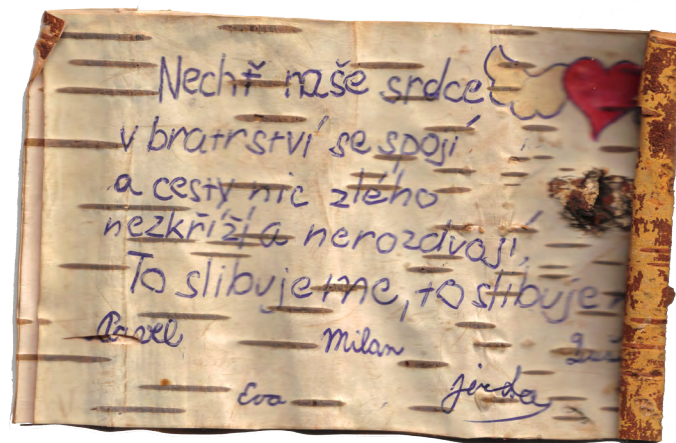 Nechť naše srdce
v bratrství se spojí
a cesty nic zlého
nezkříží a nerozdvojí,
To slibujeme, to slibuje
Pavel Milan
Eva Jirka